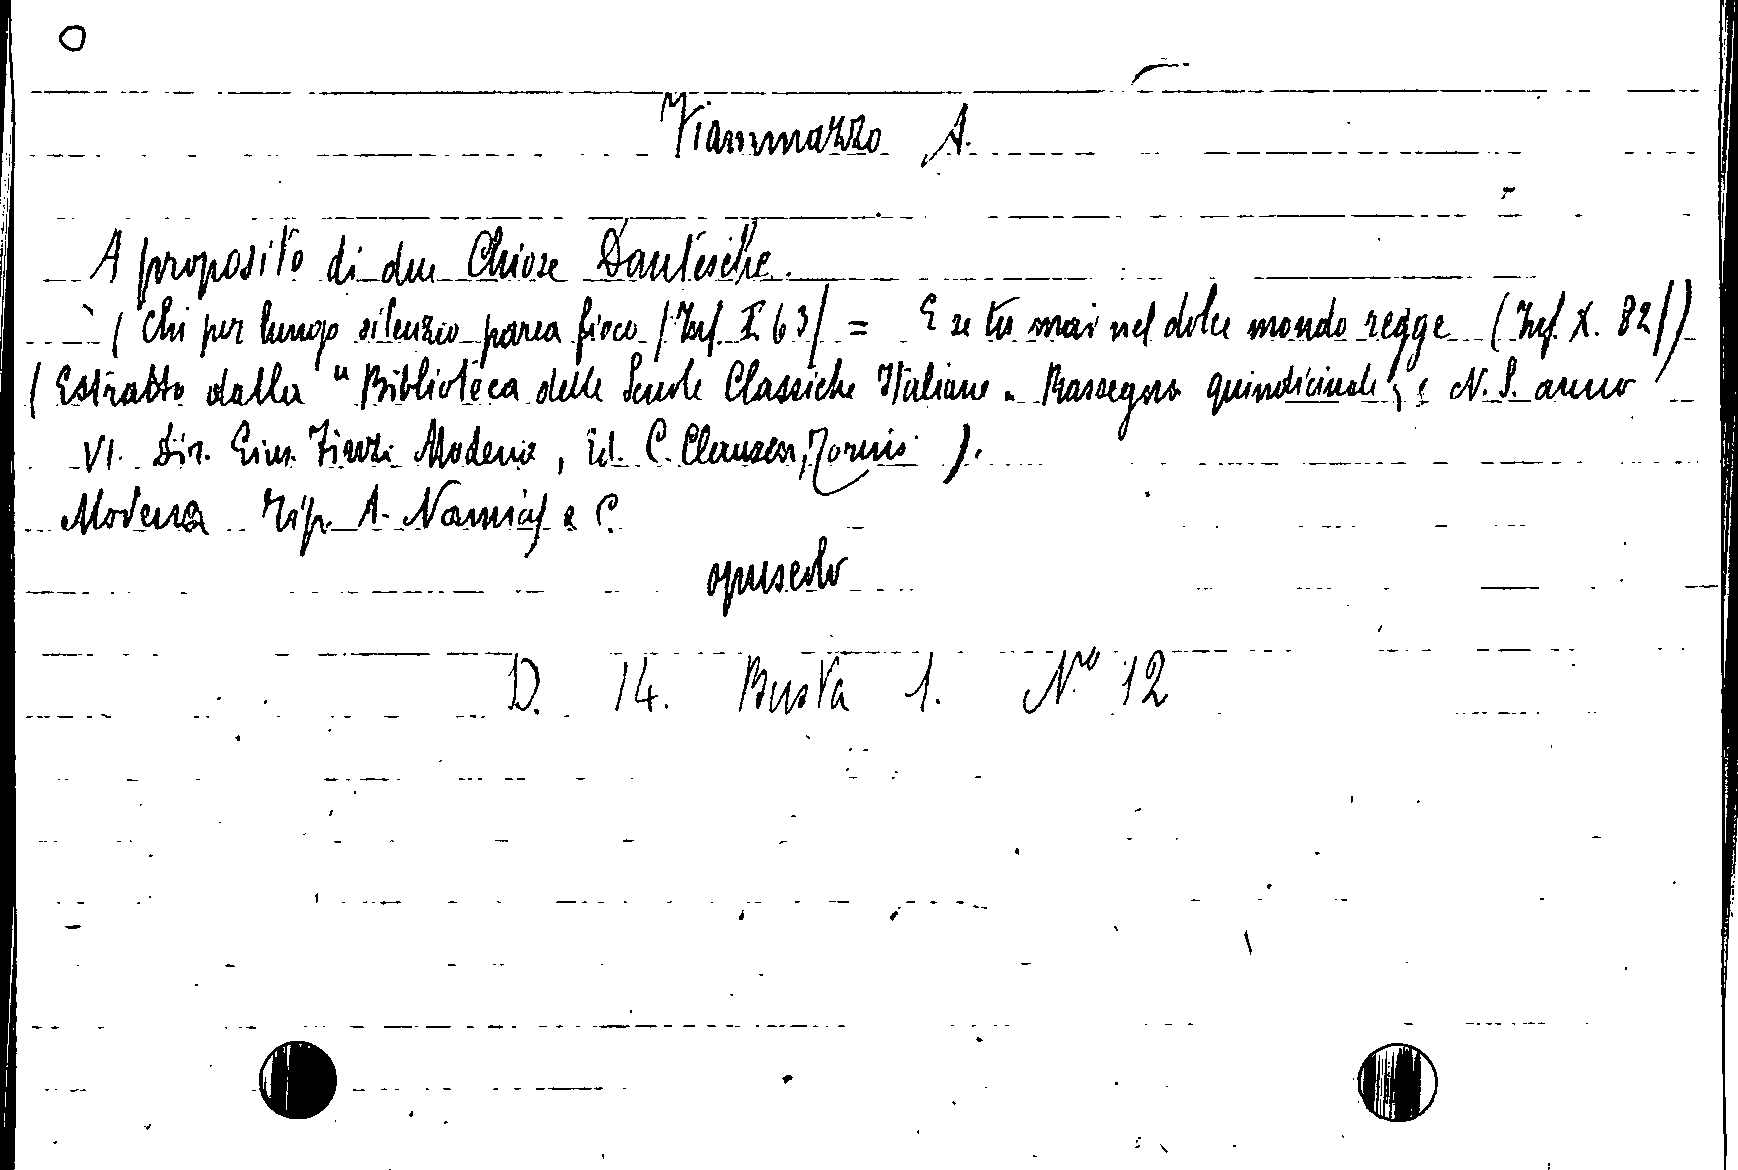 Fiammazzo A.
A proposito di due Chiose Dantesche.
( Chi per lungo silenzio parea fioco / Inf. I. 63 / = E se tu mai nel dolce mondo regge ( Inf. X. 82 / )
( Estratto dalla " Biblioteca delle Scuole Classiche Italiane . Rassegna quindicinale , N. S. anno
VI. Dir. Gius. Finzi Modena , Ed. C. Clausen, Torino ).
Modena Tip. A. Namias e C.
opuscolo
D. 14. Busta 1. Nº 12